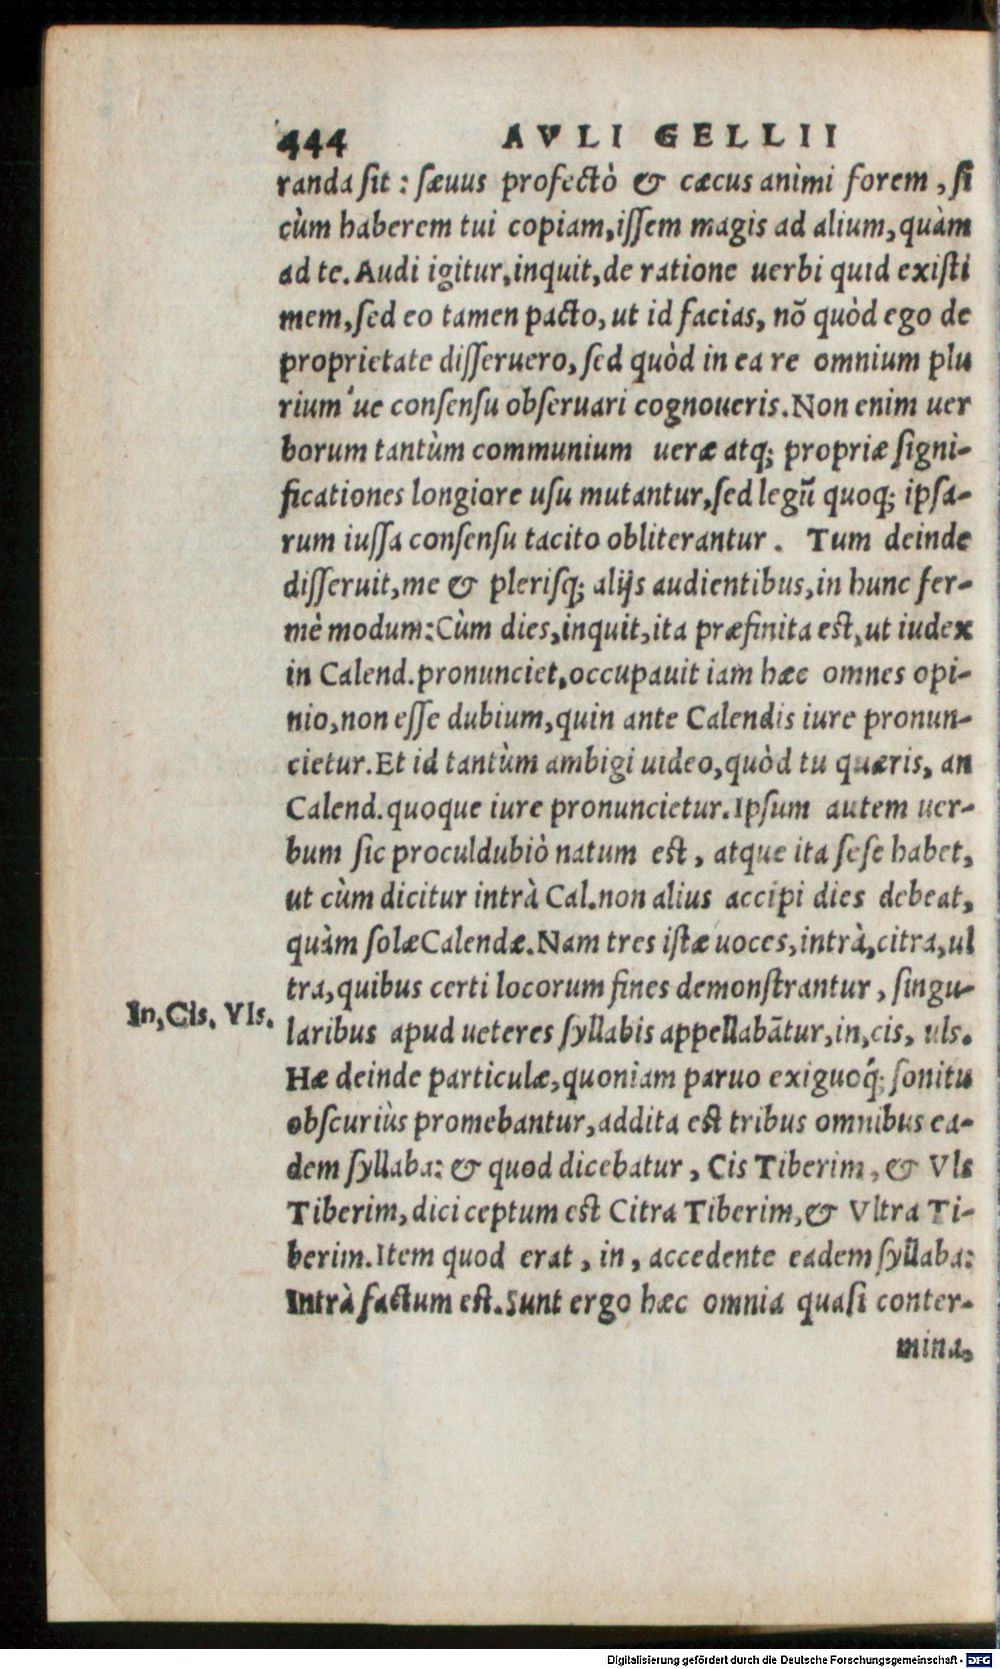 444 AVLI GELLII
randa sit : sæuus profectò & cæcus animi forem , si
cùm haberem tui copiam, issem magis ad alium, quàm
ad te. Audi igitur, inquit, de ratione uerbi quid existi
mem, sed eo tamen pacto, ut id facias, nõ quòd ego de
proprietate disseruero, sed quòd in ea re omnium plu
rium'ue consensu obseruari cognoueris. Non enim uer
borum tantùm communium ueræ atq; propriæ signi-
ficationes longiore usu mutantur, sed legũ quoq; ipsa-
rum iussa consensu tacito obliterantur . Tum deinde
disseruit, me & plerisq; alijs audientibus, in hunc fer-
mè modum: Cùm dies, inquit, ita præfinita est, ut iudex
in Calend. pronunciet, occupauit iam hæc omnes opi-
nio, non esse dubium, quin ante Calendis iure pronun-
cietur. Et id tantùm ambigi uideo, quòd tu quæris, an
Calend. quoque iure pronuncietur. Ipsum autem uer-
bum sic proculdubiò natum est , atque ita sese habet,
ut cùm dicitur intrà Cal. non alius accipi dies debeat,
quàm solæ Calendæ. Nam tres istæ uoces, intrà, citra, ul
tra, quibus certi locorum fines demonstrantur , singu-
In, Cis. Vls.
laribus apud ueteres syllabis appellabãtur, in, cis, uls.
Hæ deinde particulæ, quoniam paruo exiguoq́; sonitu
obscuriùs promebantur, addita est tribus omnibus ea-
dem syllaba: & quod dicebatur , Cis Tiberim, & Vls
Tiberim, dici ceptum est Citra Tiberim, & Vltra Ti-
berim. Item quod erat , in , accedente eadem syllaba:
Intrà factum est. Sunt ergo hæc omnia quasi conter-
mina,
Digitalisierung gefördert durch die Deutsche Forschungsgemeinschaft - DFG